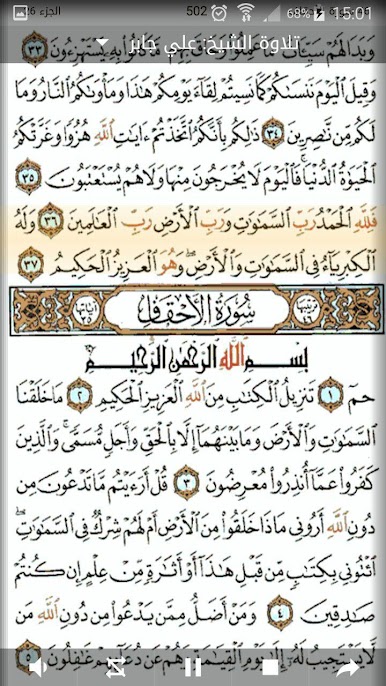 الجزء 26 502 68% 15:01
تلاوة الشيخ علي جابر
وَبَدَا لَهُمْ سَيِّئَاتُ مَا عَمِلُوا وَحَاقَ بِهِم مَّا كَانُوا بِهِ يَسْتَهْزِءُونَ ٣٣
وَقِيلَ الْيَوْمَ نَنسَاكُمْ كَمَا نَسِيتُمْ لِقَاءَ يَوْمِكُمْ هَٰذَا وَمَأْوَاكُمُ النَّارُ وَمَا
لَكُم مِّن نَّاصِرِينَ ٣٤ ذَٰلِكُم بِأَنَّكُمُ اتَّخَذْتُمْ ءَايَاتِ اللَّهِ هُزُوًا وَغَرَّتْكُمُ
الْحَيَاةُ الدُّنْيَا فَالْيَوْمَ لَا يُخْرَجُونَ مِنْهَا وَلَا هُمْ يُسْتَعْتَبُونَ ٣٥
فَلِلَّهِ الْحَمْدُ رَبِّ السَّمَاوَاتِ وَرَبِّ الْأَرْضِ رَبِّ الْعَالَمِينَ ٣٦ وَلَهُ
الْكِبْرِيَاءُ فِي السَّمَاوَاتِ وَالْأَرْضِ وَهُوَ الْعَزِيزُ الْحَكِيمُ ٣٧
سُورَةُ الْأَحْقَافِ
بِسْمِ اللَّهِ الرَّحْمَٰنِ الرَّحِيمِ
حم ١ تَنزِيلُ الْكِتَابِ مِنَ اللَّهِ الْعَزِيزِ الْحَكِيمِ ٢ مَا خَلَقْنَا
السَّمَاوَاتِ وَالْأَرْضَ وَمَا بَيْنَهُمَا إِلَّا بِالْحَقِّ وَأَجَلٍ مُّسَمًّى وَالَّذِينَ
كَفَرُوا عَمَّا أُنذِرُوا مُعْرِضُونَ ٣ قُلْ أَرَءَيْتُم مَّا تَدْعُونَ مِن
دُونِ اللَّهِ أَرُونِي مَاذَا خَلَقُوا مِنَ الْأَرْضِ أَمْ لَهُمْ شِرْكٌ فِي السَّمَاوَاتِ
ائْتُونِي بِكِتَابٍ مِّن قَبْلِ هَٰذَا أَوْ أَثَارَةٍ مِّنْ عِلْمٍ إِن كُنتُمْ
صَادِقِينَ ٤ وَمَنْ أَضَلُّ مِمَّن يَدْعُوا مِن دُونِ اللَّهِ مَن
لَّا يَسْتَجِيبُ لَهُ إِلَىٰ يَوْمِ الْقِيَامَةِ وَهُمْ عَن دُعَائِهِمْ غَافِلُونَ ٥